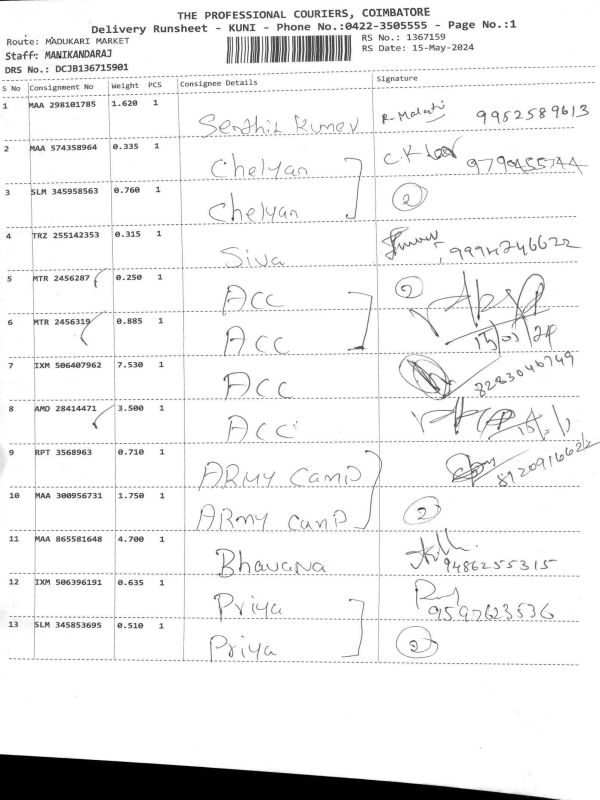 THE PROFESSIONAL COURIERS, COIMBATORE
Delivery Runsheet - KUNI - Phone No.:0422-3505555 - Page No.:1
Route: MADUKARI MARKET
RS No.: 1367159
Staff: MANIKANDARAJ
RS Date: 15-May-2024
DRS No.: DCJB136715901
S No Consignment No Weight PCS Consignee Details Signature
1 MAA 298101785 1.620 1 Senthil Kumar R. Malathi 9952589613
2 MAA 574358964 0.335 1 Cheliyan C.K 9790455744
3 SLM 345958563 0.760 1 Cheliyan 2
4 TRZ 255142353 0.315 1 Siva 9994246622
5 MTR 2456287 0.250 1 ACC 2
6 MTR 2456319 0.885 1 ACC
7 IXM 506407962 7.530 1 ACC 8283046749
8 AMD 28414471 3.500 1 ACC
9 RPT 3568963 0.710 1 ARMY CAMP
10 MAA 300956731 1.750 1 ARMY CAMP 2
11 MAA 865581648 4.700 1 Bhavana 9486255315
12 IXM 506396191 0.635 1 Priya 9597623536
13 SLM 345853695 0.510 1 Priya 2